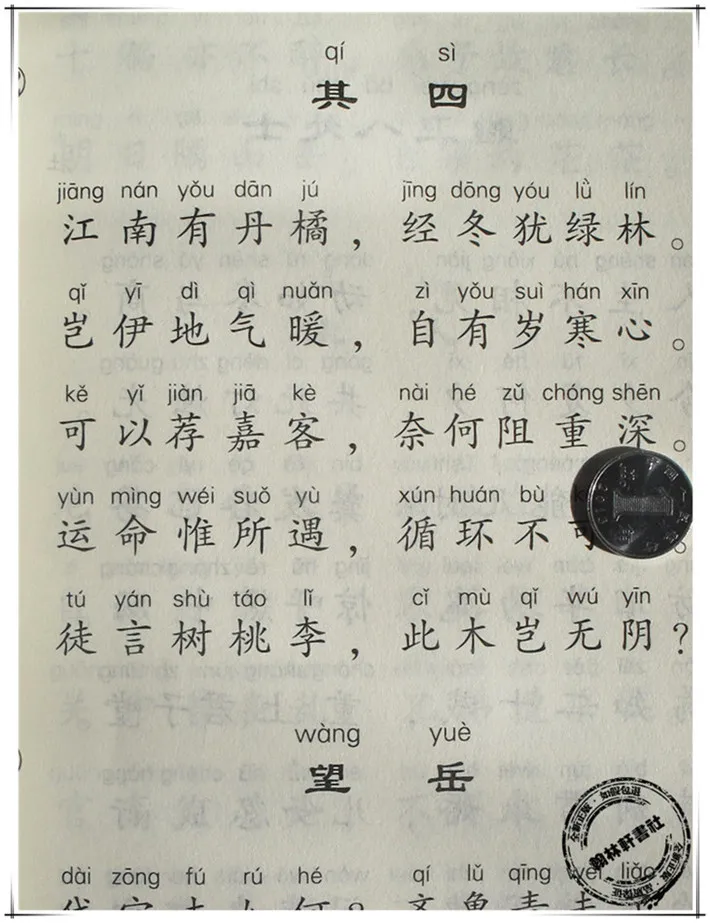 qí sì
其 四
jiāng nán yǒu dān jú jīng dōng yóu lǜ lín
江南有丹橘，经冬犹绿林。
qǐ yī dì qì nuǎn zì yǒu suì hán xīn
岂伊地气暖，自有岁寒心。
kě yǐ jiàn jiā kè nài hé zǔ chóng shēn
可以荐嘉客，奈何阻重深。
yùn mìng wéi suǒ yù xún huán bù
运命惟所遇，循环不可。
tú yán shù táo lǐ cǐ mù qǐ wú yīn
徒言树桃李，此木岂无阴？
wàng yuè
望 岳
翰林軒書社
dài zōng fú rú hé qí lǔ qīng wèi liǎo